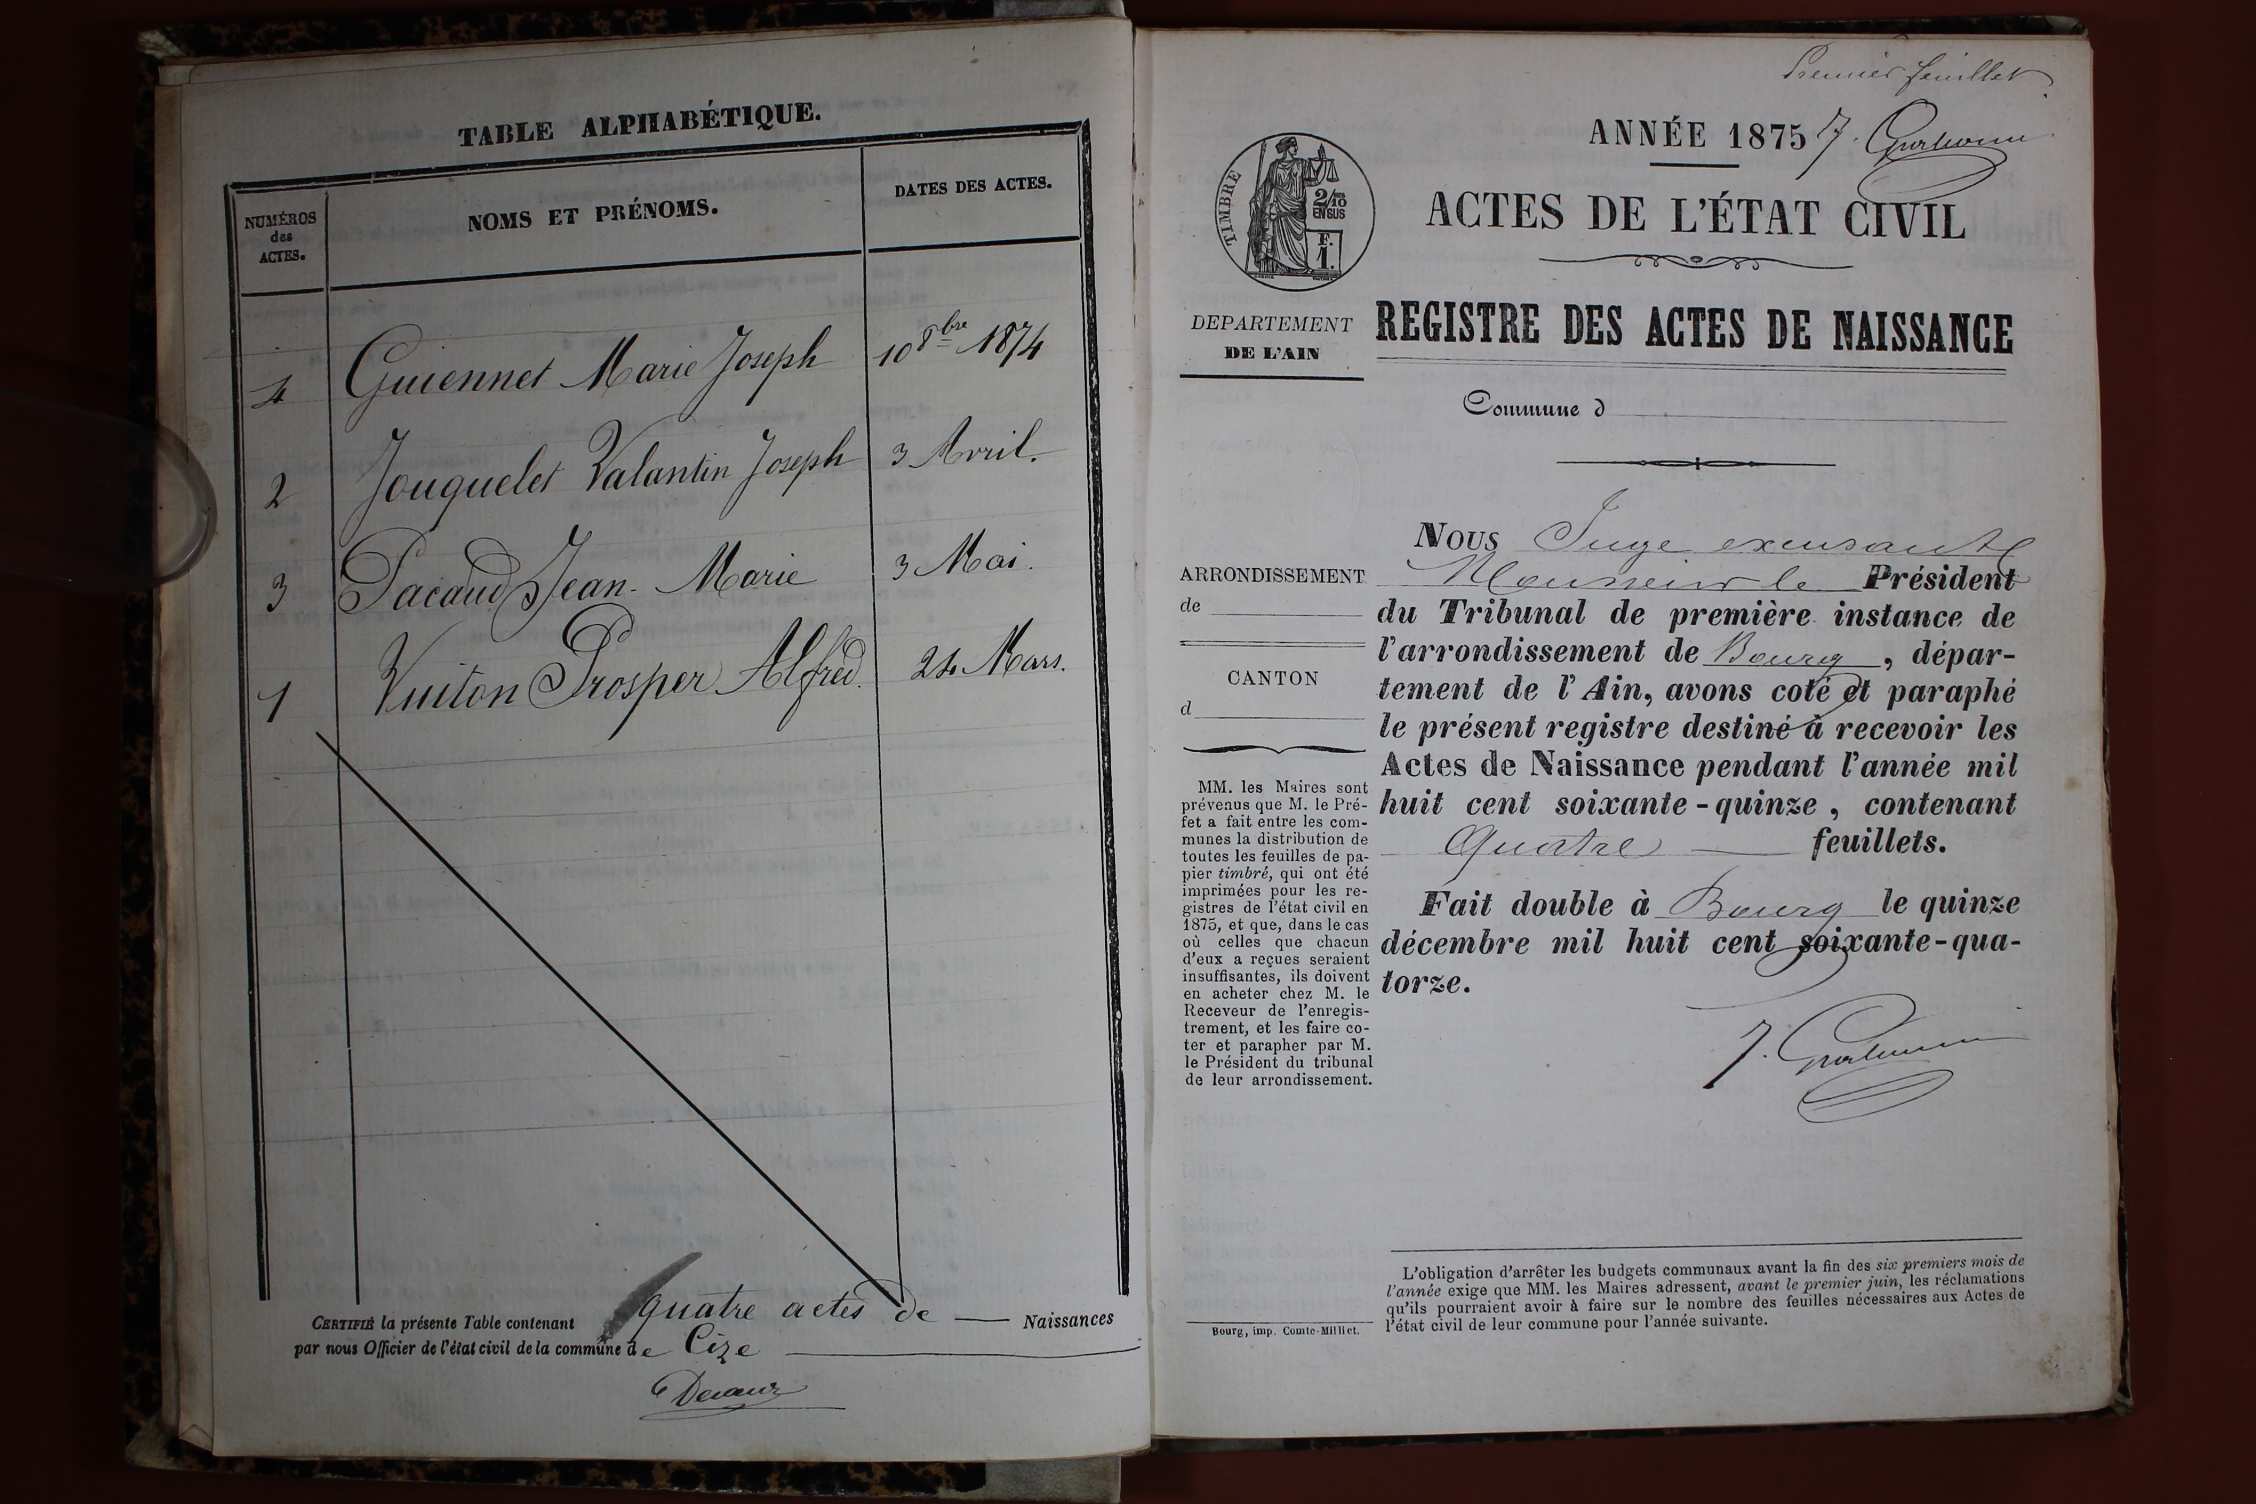 TABLE ALPHABÉTIQUE.
NUMÉROS des ACTES.
NOMS ET PRÉNOMS.
DATES DES ACTES.
4 Guiennet Marie Joseph 10 8bre 1874
2 Jouguelet Valantin Joseph 3 Avril.
3 Pacaud Jean-Marie 3 Mai.
1 Vuiton Prosper Alfred. 24 Mars.
CERTIFIÉ la présente Table contenant quatre actes de — Naissances
par nous Officier de l'état civil de la commune de Cize
Premier feuillet
ANNÉE 1875
ACTES DE L'ÉTAT CIVIL
TIMBRE
2/10
EN SUS
F.
1.
DEPARTEMENT
DE L'AIN
REGISTRE DES ACTES DE NAISSANCE
Commune d
ARRONDISSEMENT
de
CANTON
d
MM. les Maires sont
prévenus que M. le Pré-
fet a fait entre les com-
munes la distribution de
toutes les feuilles de pa-
pier timbré, qui ont été
imprimées pour les re-
gistres de l'état civil en
1875, et que, dans le cas
où celles que chacun
d'eux a reçues seraient
insuffisantes, ils doivent
en acheter chez M. le
Receveur de l'enregis-
trement, et les faire co-
ter et parapher par M.
le Président du tribunal
de leur arrondissement.
Bourg, imp. Comte-Milliet.
NOUS Juge excusant
Monsieur le Président
du Tribunal de première instance de
l'arrondissement de Bourg, dépar-
tement de l'Ain, avons coté et paraphé
le présent registre destiné à recevoir les
Actes de Naissance pendant l'année mil
huit cent soixante-quinze, contenant
Quatre feuillets.
Fait double à Bourg le quinze
décembre mil huit cent soixante-qua-
torze.
L'obligation d'arrêter les budgets communaux avant la fin des six premiers mois de
l'année exige que MM. les Maires adressent, avant le premier juin, les réclamations
qu'ils pourraient avoir à faire sur le nombre des feuilles nécessaires aux Actes de
l'état civil de leur commune pour l'année suivante.